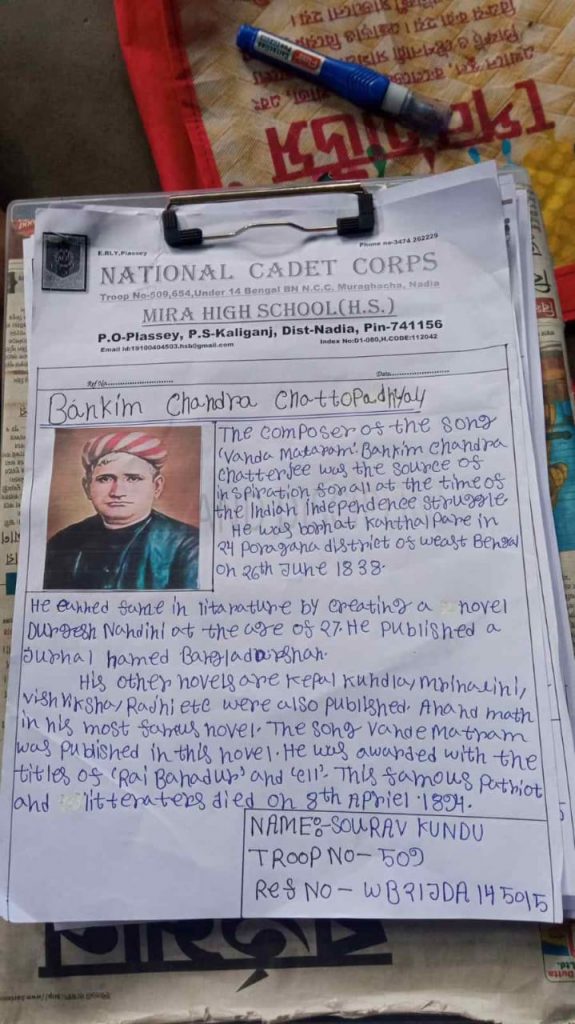 E.RLY,Plassey
Phone no-3474 262229
NATIONAL CADET CORPS
Troop No-509,654,Under 14 Bengal BN N.C.C. Muraghacha, Nadia
MIRA HIGH SCHOOL(H.S.)
P.O-Plassey, P.S-Kaliganj, Dist-Nadia, Pin-741156
Email id:19100404503.hsb@gmail.com
Index No:D1-080,H.CODE:112042
Ref No
Date
Bankim Chandra Chattopadhyay
The composer of the song
'Vanda Mataram'. Bankim Chandra
Chatterjee was the source of
inspiration for all at the time of
the Indian independence struggle.
He was born at Kanthalpare in
24 poragana district of weast Bengal
on 26th June 1838.
He eanned fame in literature by creating a novel
Durgesh Nandini at the age of 27. He published a
Jurnal named Bangladarshan.
His other novels are Kepal Kundla, Mrinalini,
vishviksha, Radhi etc were also published. Anand math
in his most famous novel. The song Vande Matram
was published in this novel. He was awarded with the
titles of 'Rai Bahadur' and 'ell'. This famous Patriot
and litteraters died on 8th Apriel 1894.
NAME:-SOURAV KUNDU
TROOP NO- 509
Reg NO- WB21JDA145015